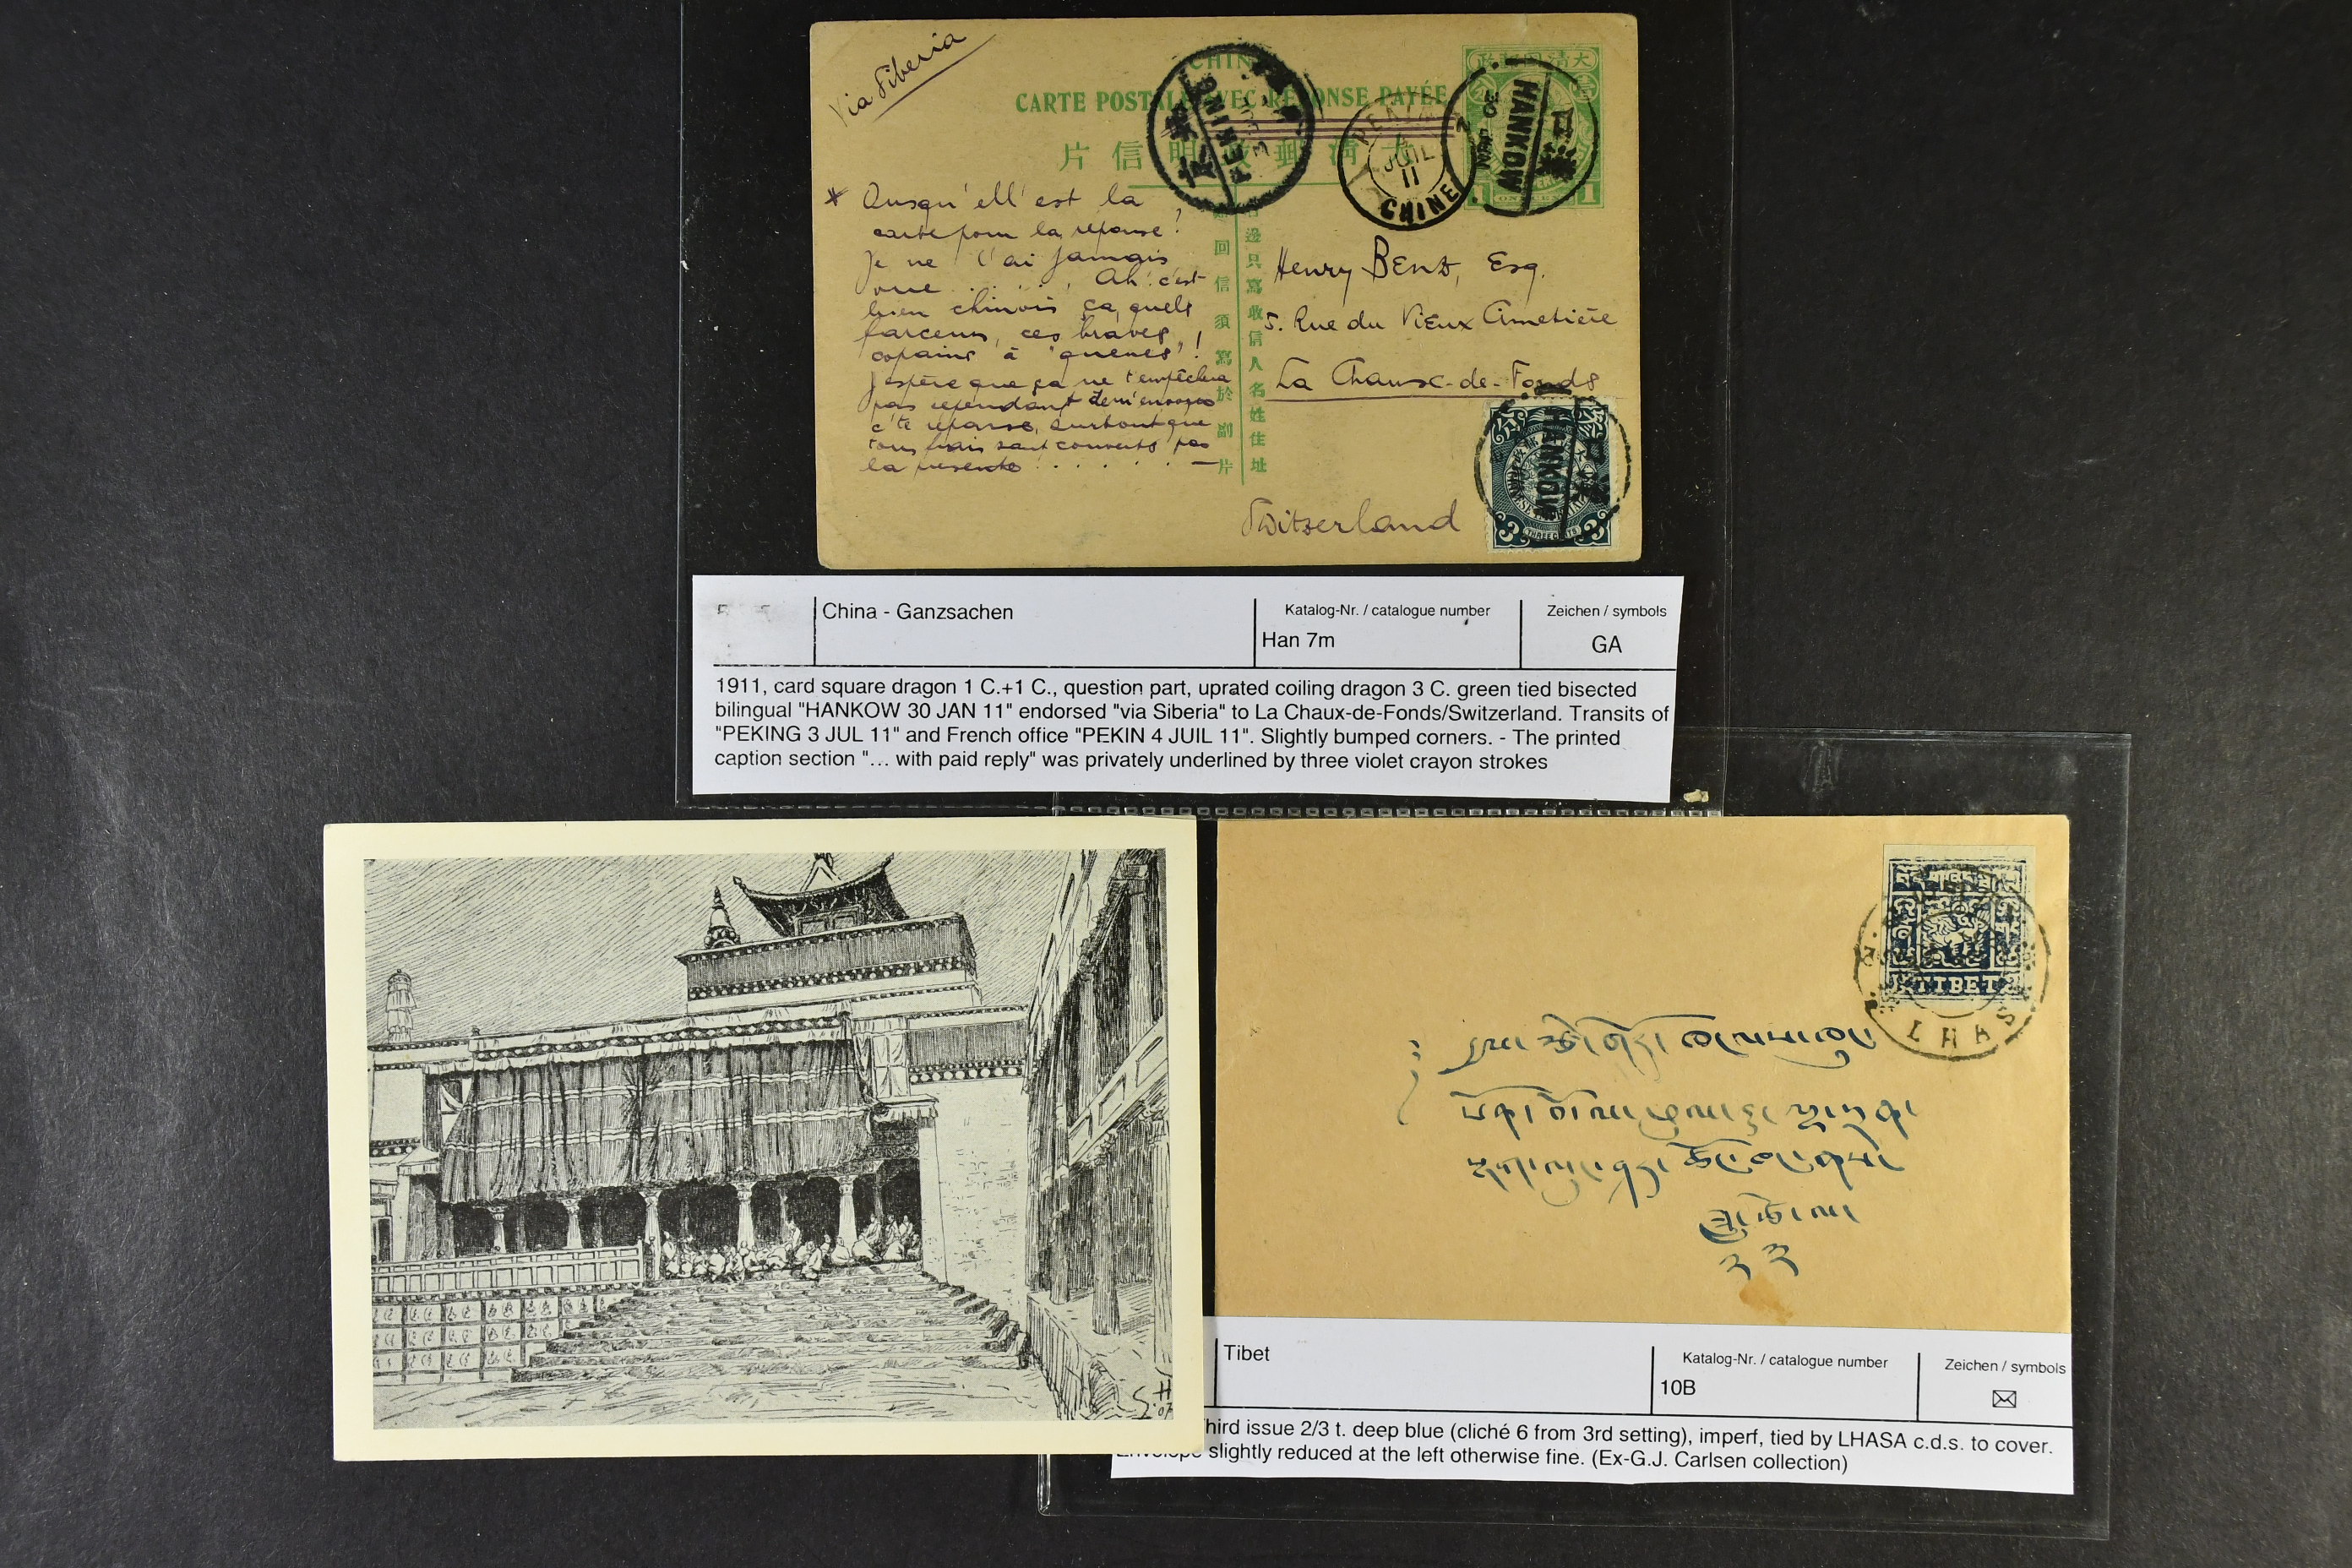 Via Siberia
CHINE
CARTE POSTALE AVEC RÉPONSE PAYÉE
PEKING
PEKIN
4
JUIL
11
CHINE
HANKOW
30
大清國郵政
1
片信明 郵清大
* Ousqu'ell'est la
carte pour la réponse?
Je ne l'ai jamais
vue ..... Ah! c'est
bien chinois ça, quels
farceurs, ces braves
copains à "queues"!
J'espère que ça ne t'empêchera
pas cependant de m'envoyer
c'te réponse, surtout que
tous frais sont couverts par
la présente ......
回信須寫於副片
邊只寫收信人名姓住址
Henry Benz, Esq.
5. Rue du Vieux Cimetière
La Chaux-de-Fonds
Switzerland
HANKOW
3 THREE CENTS 3
China - Ganzsachen
Katalog-Nr. / catalogue number
Han 7m
Zeichen / symbols
GA
1911, card square dragon 1 C.+1 C., question part, uprated coiling dragon 3 C. green tied bisected
bilingual "HANKOW 30 JAN 11" endorsed "via Siberia" to La Chaux-de-Fonds/Switzerland. Transits of
"PEKING 3 JUL 11" and French office "PEKIN 4 JUIL 11". Slightly bumped corners. - The printed
caption section "... with paid reply" was privately underlined by three violet crayon strokes
TIBET
LHAS
S.H
07
Tibet
Katalog-Nr. / catalogue number
10B
Zeichen / symbols
✉
hird issue 2/3 t. deep blue (cliché 6 from 3rd setting), imperf, tied by LHASA c.d.s. to cover.
Envelope slightly reduced at the left otherwise fine. (Ex-G.J. Carlsen collection)